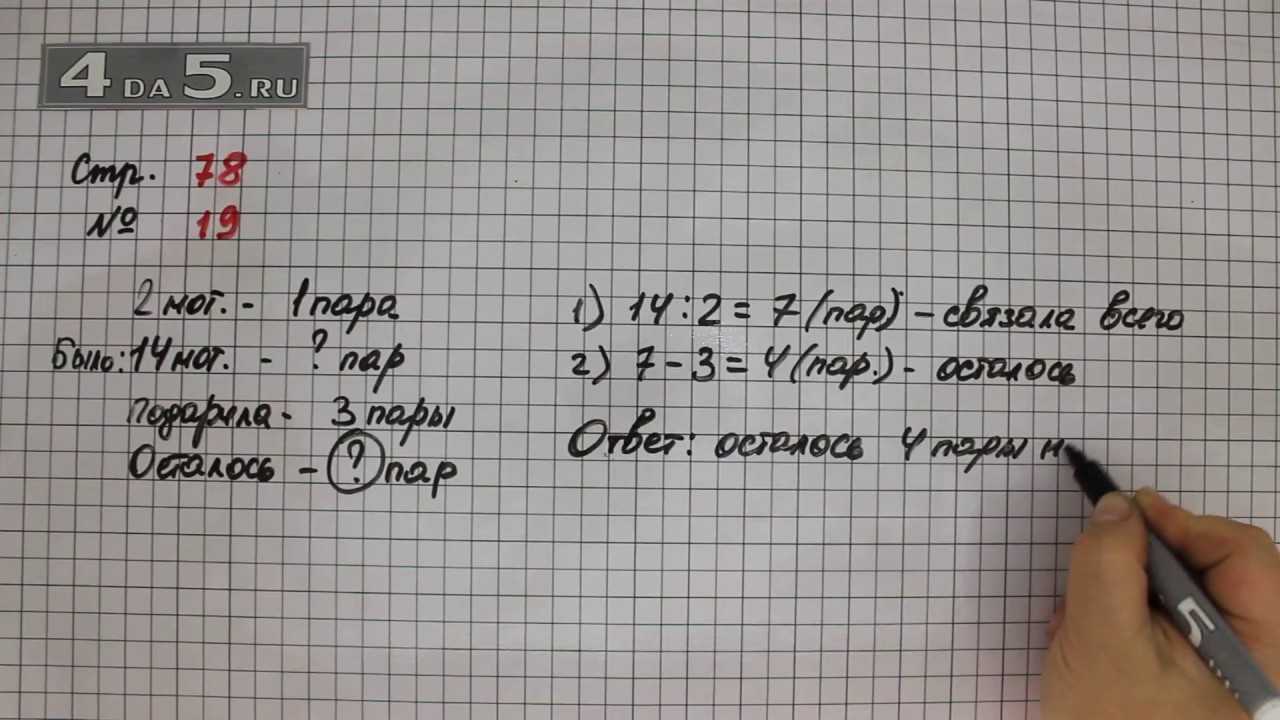 4 DA 5.RU
Стр. 78
№ 19
2 мот. - 1 пара
Было: 14 мот. - ? пар
Подарила - 3 пары
Осталось - ? пар
1) 14 : 2 = 7 (пар) - связала всего
2) 7 - 3 = 4 (пар.) - осталось
Ответ: осталось 4 пары н
5